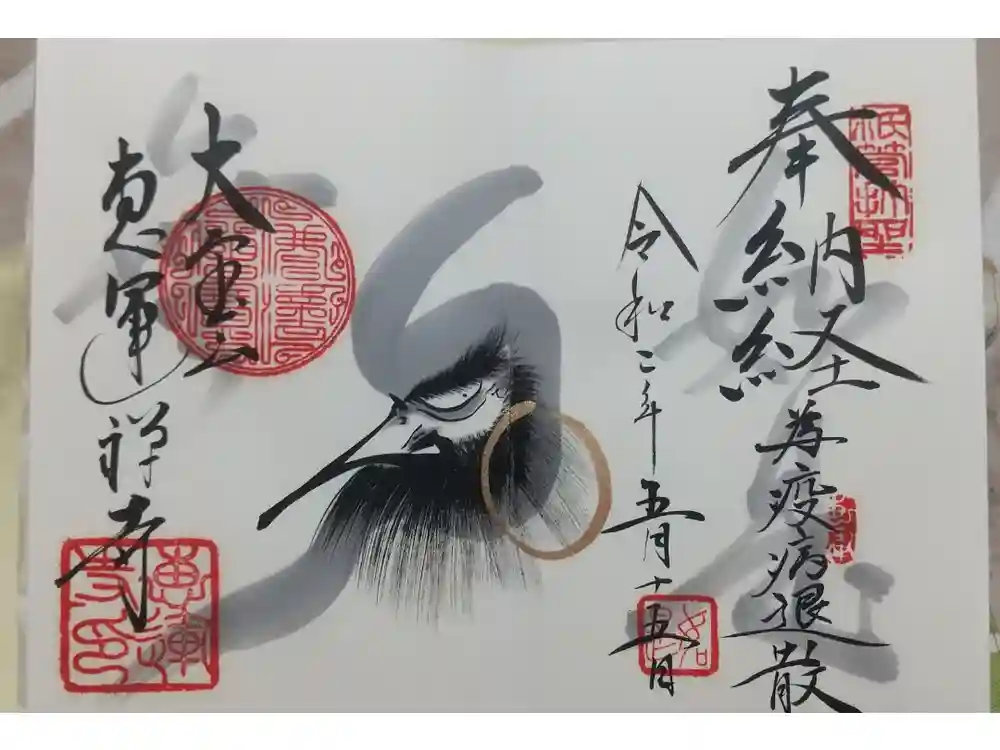 奉納経
為疫病退散
令和二年五月十五日
大宝山
恵運禅寺